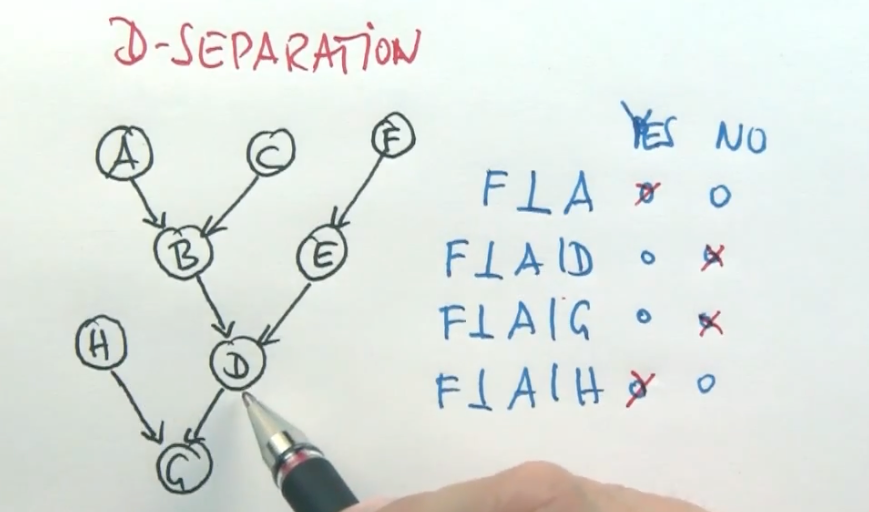 D-SEPARATION
A C F
B E
H D
G
YES NO
F⊥A
F⊥A|D
F⊥A|G
F⊥A|H